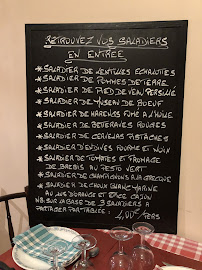 RETROUVEZ VOS SALADIERS
EN ENTRÉE
*SALADIER DE LENTILLES ECHALOTTES
*SALADIER DE POMMES DE TERRE
*SALADIER DE PIED DE VEAU PERSILLÉ
*SALADIER DE MUSEAU DE BOEUF
*SALADIER DE HARENGS FUMÉ A L'HUILE
*SALADIER DE BETTERAVES ROUGES
*SALADIER DE CERVELAS PISTACHES
*SALADIER D'ENDIVES FOURME ET NOIX
*SALADIER DE TOMATES ET FROMAGE
DE BREBIS AU PESTO VERT
*SALADIER DE CHAMPIGNONS A LA GRECQUE
*SALADIER DE CHOUX CHINOIS
AU JUS D'ORANGE ET EPICE CAJUN
NB: SUR LA BASE DE 3 SALADIERS A
PARTAGER PAR TABLÉE : /PERS